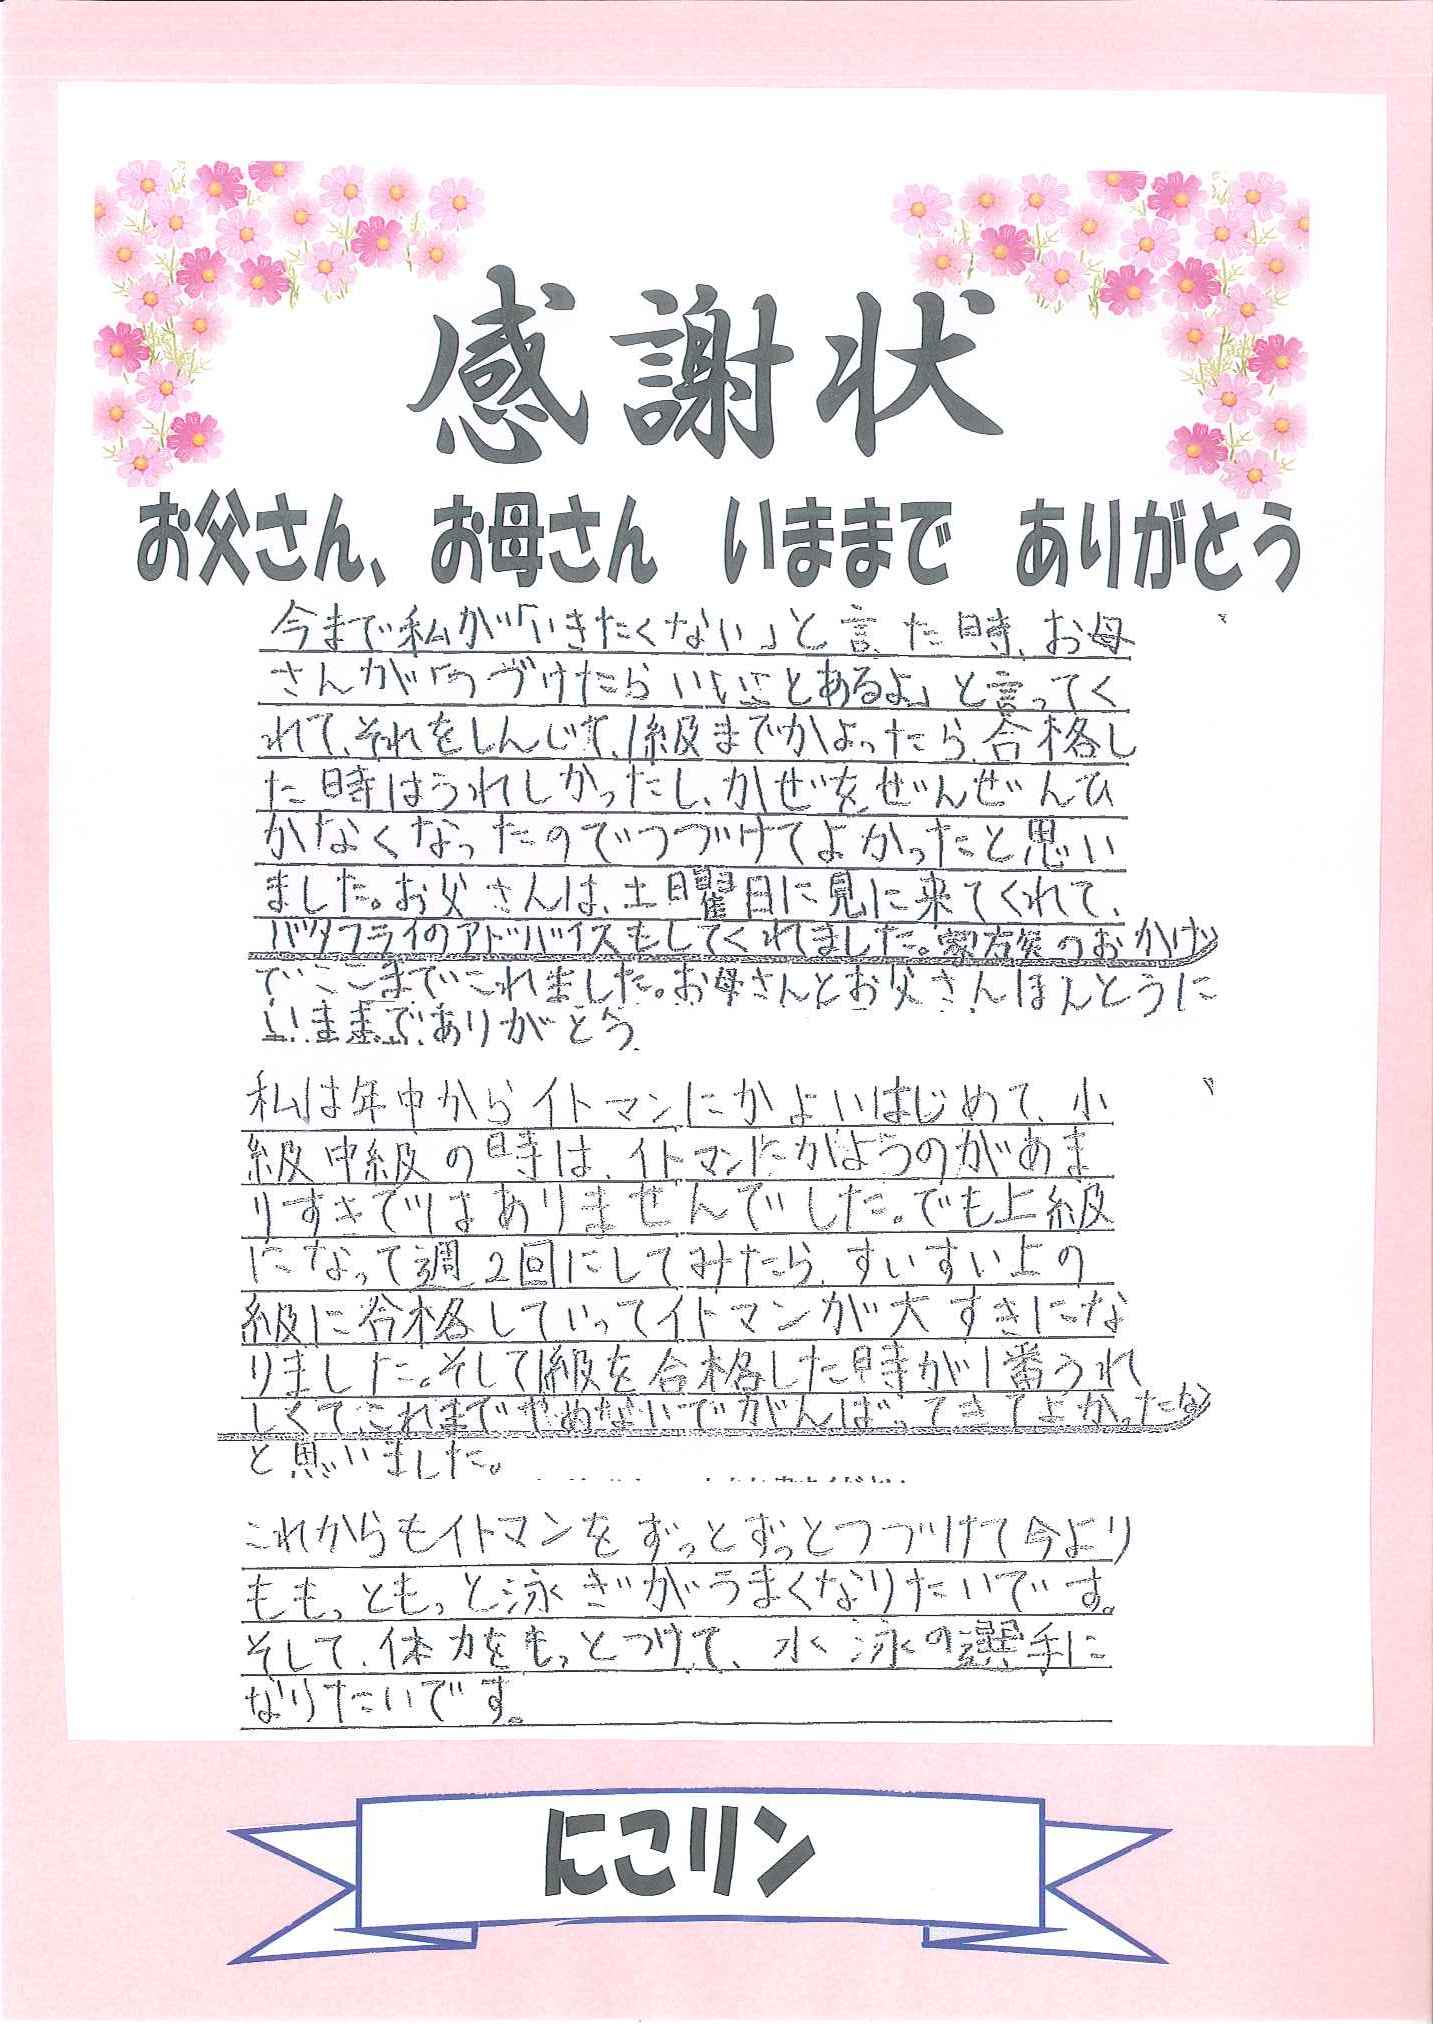 感謝状
お父さん、お母さん いままで ありがとう
今まで私が「いきたくない」と言った時、お母
さんが「つづけたらいいことあるよ」と言ってく
れて、それをしんじて、1級までかよったら、合格し
た時はうれしかったし、かぜをぜんぜんひ
かなくなったのでつづけてよかったと思い
ました。お父さんは、土曜日に見に来てくれて、
バタフライのアドバイスもしてくれました。家族のおかげ
でここまでこれました。お母さんとお父さんほんとうに
いままでありがとう
私は年中からイトマンにかよいはじめて、小
級中級の時は、イトマンにかようのがあま
りすきではありませんでした。でも上級
になって週2回にしてみたら、すいすい上の
級に合格していってイトマンが大すきにな
りました。そして1級を合格した時が1番うれ
しくて、これまでやめないでがんばってきてよかったな
と思いました。
これからもイトマンをずっとずっとつづけて今より
ももっともっと泳ぎがうまくなりたいです。
そして、体力をもっとつけて、水泳の選手に
なりたいです。
にこリン